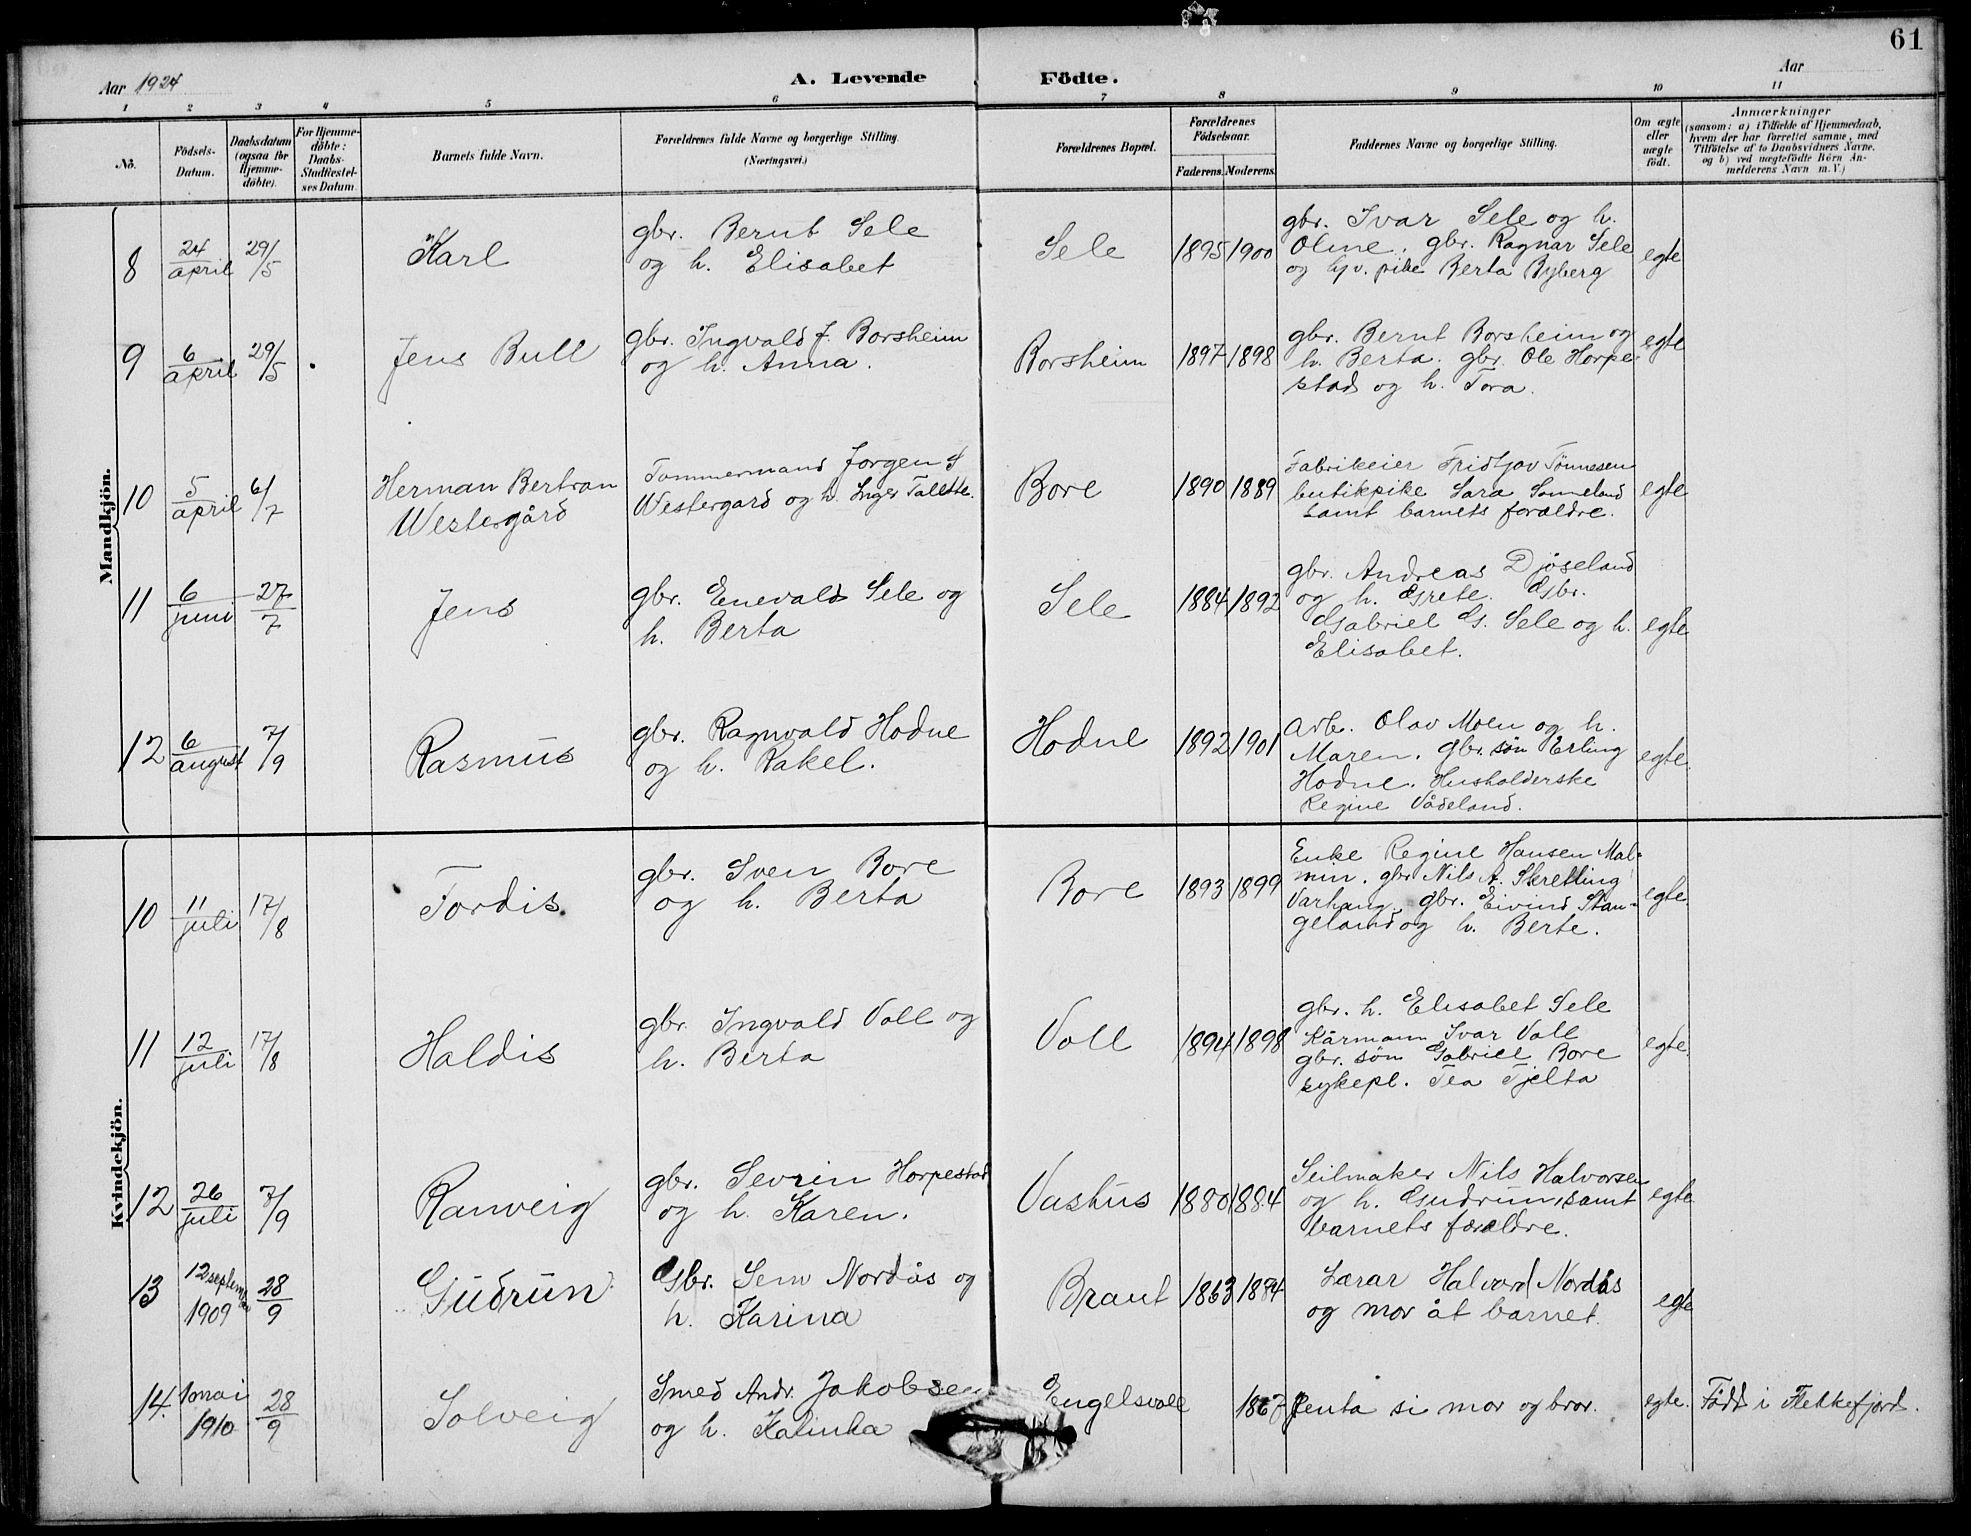 61
Aar 1924
A. Levende Födte.
Aar
1 2 3 4 5 6 7 8 9 10 11
No.
Födsels-Datum.
Daabsdatum (ogsaa for Hjemme-döbte).
For Hjemme-döbte: Daabs-Stadfæstel-ses Datum
Barnets fulde Navn.
Forældrenes fulde Navne og borgerlige Stilling. (Næringsvei.)
Forældrenes Bopæl.
Forældrenes Födselsaar.
Faderens. Moderens.
Faddernes Navne og borgerlige Stilling.
Om ægte eller uægte födt.
Anmærkninger
(saasom: a) i Tilfælde af Hjemmedaab,
hvem der har forrettet samme, med
Tilföielse af to Daabsvidners Navne.
og b) ved uægtefödte Börn An-
melderens Navn m. V.)
Mandkjön.
8 24/april 29/5 Karl
gbr. Bernt Sele
og h. Elisabet
Sele 1895 1900
gbr. Ivar Sele og h.
Oline. gbr. Ragnar Sele
og hjv. pike Berta Byberg
egte
9 6/april 29/5 Jens Bull
gbr. Ingvald J. Borsheim
og h. Anna.
Borsheim 1897 1898
gbr. Bernt Borsheim og
h. Berta. gbr. Ole Horpe-
stad og h. Tora.
egte
10 5/april 6/7 Herman Bertran
Westergård
Tømmermand Jorgen
Westergard og h. Inger Talette.
Bore 1890 1889
Fabrikeier Fridtjov Tönnesen
butikpike Sara Sømeland
samt barnets foraldre.
egte
11 6/juni 27/7 Jens
gbr. Enevald Sele og
h. Berta
Sele 1884 1892
gbr. Andreas Djöseland
og h. Grete. Gbr.
Gabriel G. Sele og h.
Elisabet.
egte
12 6/august 7/9 Rasmus
gbr. Ragnvald Hodne
og h. Rakel.
Hodne 1892 1901
Arb. Olav Moen og h.
Maren. gbr. søn Erling
Hodne. Husholderske
Regine Vådeland.
egte.
Kvindekjön.
10 11/juli 17/8 Tordis.
gbr. Sven Bore
og h. Berta
Bore 1893 1899
Enke Regine Hansen Mal-
min. gbr Nils A. Skretting
Varhaug. gbr. Eivind Stan-
geland og h. Berte.
egte
11 12/juli 17/8 Haldis
gbr. Ingvald Voll og
h. Berta
Voll 1894 1898
gbr. h. Elisabet Sele
Kårmann Ivar Voll
gbr. søn Gabriel Bore
sykepl. Tea Tjelta
egte.
12 26/juli 7/9 Ranveig
gbr. Sevrin Horpestad
og h. Karen.
Vashus 1880 1884
Seilmaker Nils Halvorsen
og h. Gudrun, samt
barnets foraldre.
egte
13 12 september 1909 28/9 Gudrun
Gbr. Sem Nordås og
h. Karina
Braut 1863 1884
Lærar Halvard Nordås
og mor åt barnet.
egte
14. 1 mai 1910 28/9 Solveig
Smed Andr. Jakobsen
og h. Kalinka
Engelsvoll 1867
Jenta si mor og bror.
egte.
Född i Flekkefjord.